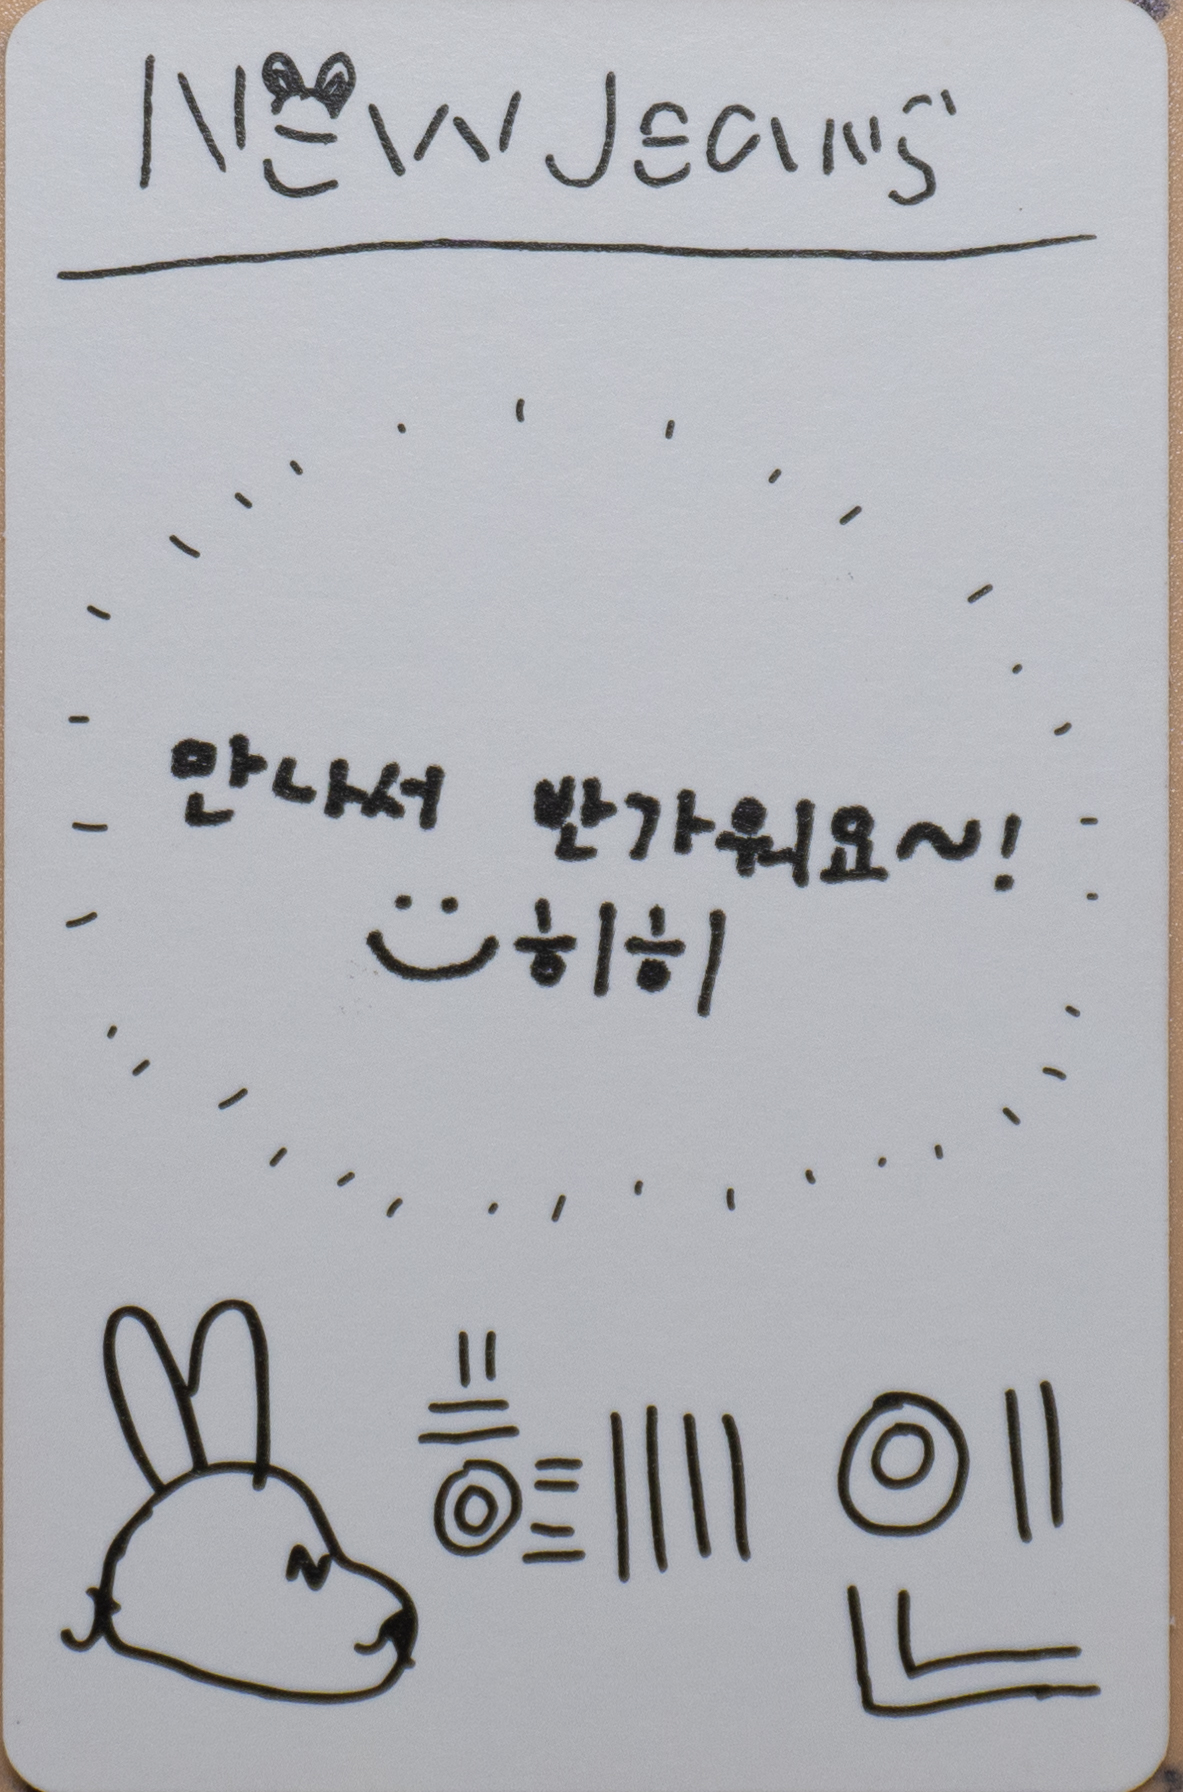 NEW JEANS
만나서 반가워요~!
히히
혜인